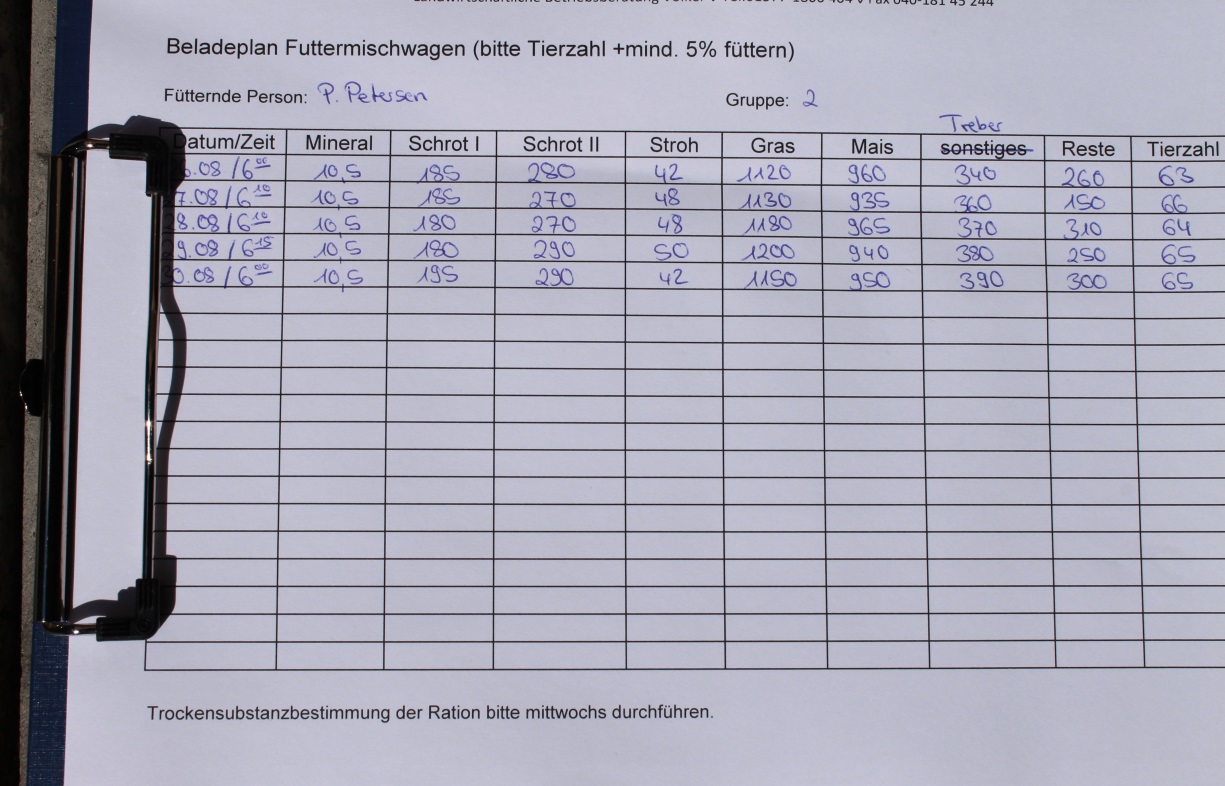 Beladeplan Futtermischwagen (bitte Tierzahl +mind. 5% füttern)
Fütternde Person: P. Petersen Gruppe: 2
Treber
Datum/Zeit Mineral Schrot I Schrot II Stroh Gras Mais sonstiges Reste Tierzahl
6.08 / 6⁰⁰ 10,5 185 280 42 1120 960 340 260 63
7.08 / 6¹⁰ 10,5 185 270 48 1130 935 360 150 66
28.08 / 6¹⁰ 10,5 180 270 48 1180 965 370 310 64
29.08 / 6¹⁵ 10,5 180 290 50 1200 940 380 250 65
0.08 / 6⁰⁰ 10,5 195 290 42 1150 950 390 300 65
Trockensubstanzbestimmung der Ration bitte mittwochs durchführen.